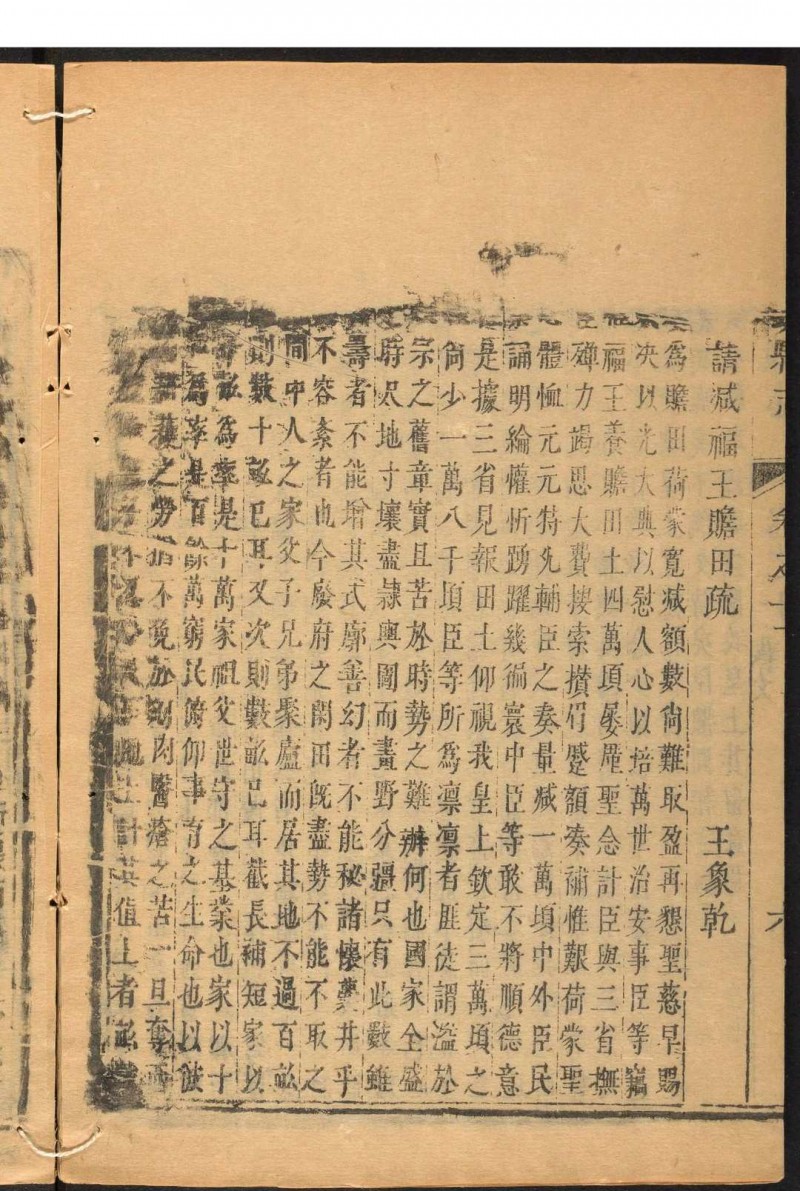 請減福王贍田疏 王象乾
為贍田荷蒙寬減額數尚難取盈再懇聖慈早賜
决以光大典以慰人心以培萬世治安事臣等竊
福王養贍田土四萬頃屡厪聖念計臣與三省撫
殫力竭思大費搜索攅眉蹙額奏補惟艱荷蒙聖
體恤元元特允輔臣之奏量减一萬頃中外臣民
誦明綸懽忻踴躍幾徧寰中臣等敢不將順德意
是據三省見報田土仰視我皇上欽定三萬頃之
尚少一萬八千頃臣等所為凛凛者匪徒謂溢於
宗之舊章實且苦於時勢之難辦何也國家全盛
時尺地寸壤盡隷輿圖而畫野分疆只有此數雖
壽者不能增其式廓善幻者不能秘諸懷䕫井乎
不容紊者也今廢府之閑田旣盡勢不能不取之
間中人之家父子兄弟聚廬而居其地不過百畝
則數十畝已耳又次則數畝已耳截長補短家以
畝為率是十萬家祖父世守之基業也家以十
為率是百餘萬窮民俯仰事育之生命也以彼
之勞猶不免於剜肉醫瘡之苦一旦奪
土計其值上者畝